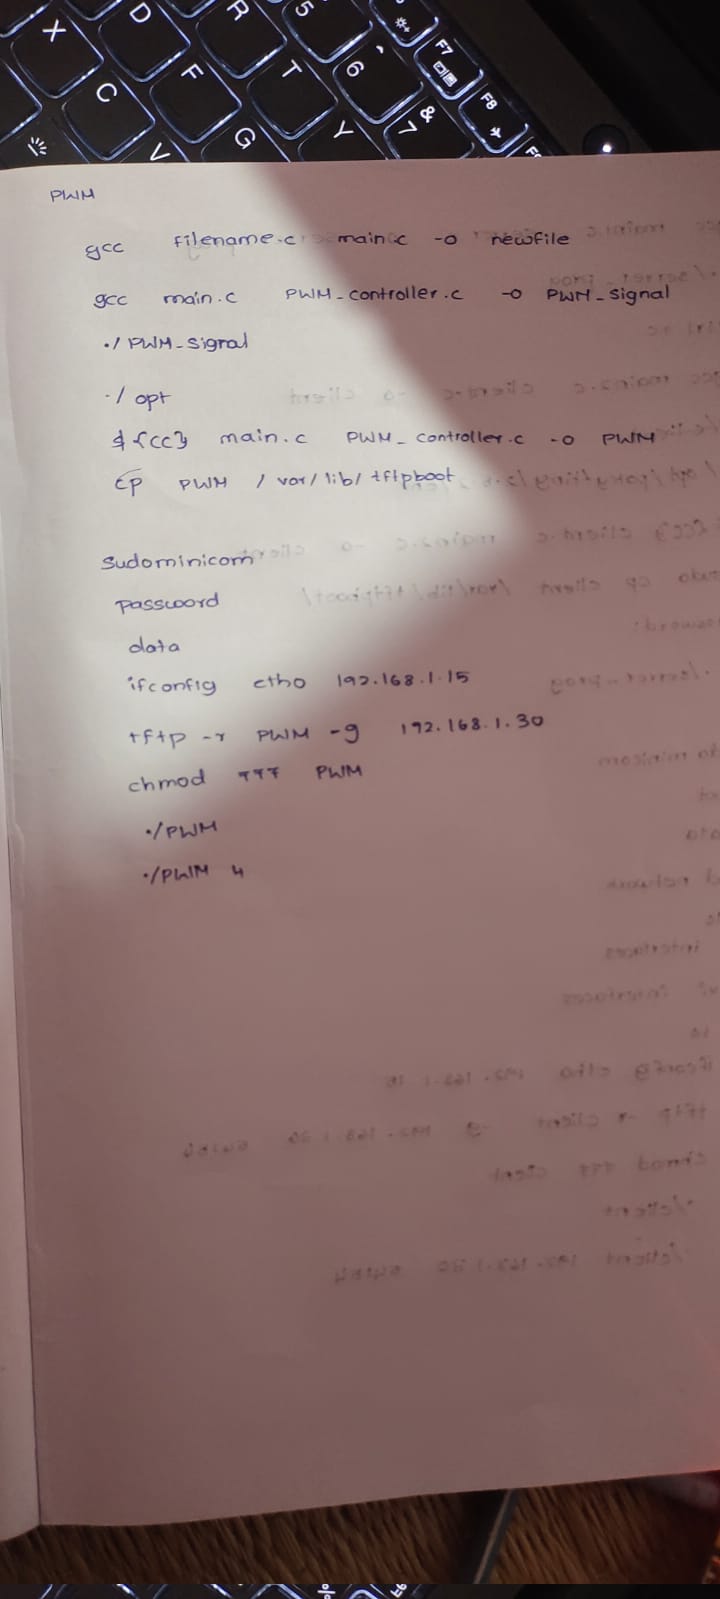 X
D
R
5
C
F
T
6
F7
F8
V
G
Y
7
&
PWM
gcc filename.c main.c -o newfile
gcc main.c PWM_controller.c -o PWM_signal
./PWM_signal
./opt
${cc} main.c PWM_controller.c -o PWM
cp PWM /var/lib/tftpboot
sudominicom
password
data
ifconfig etho 192.168.1.15
tftp -r PWM -g 192.168.1.30
chmod 777 PWM
./PWM
./PWM 4